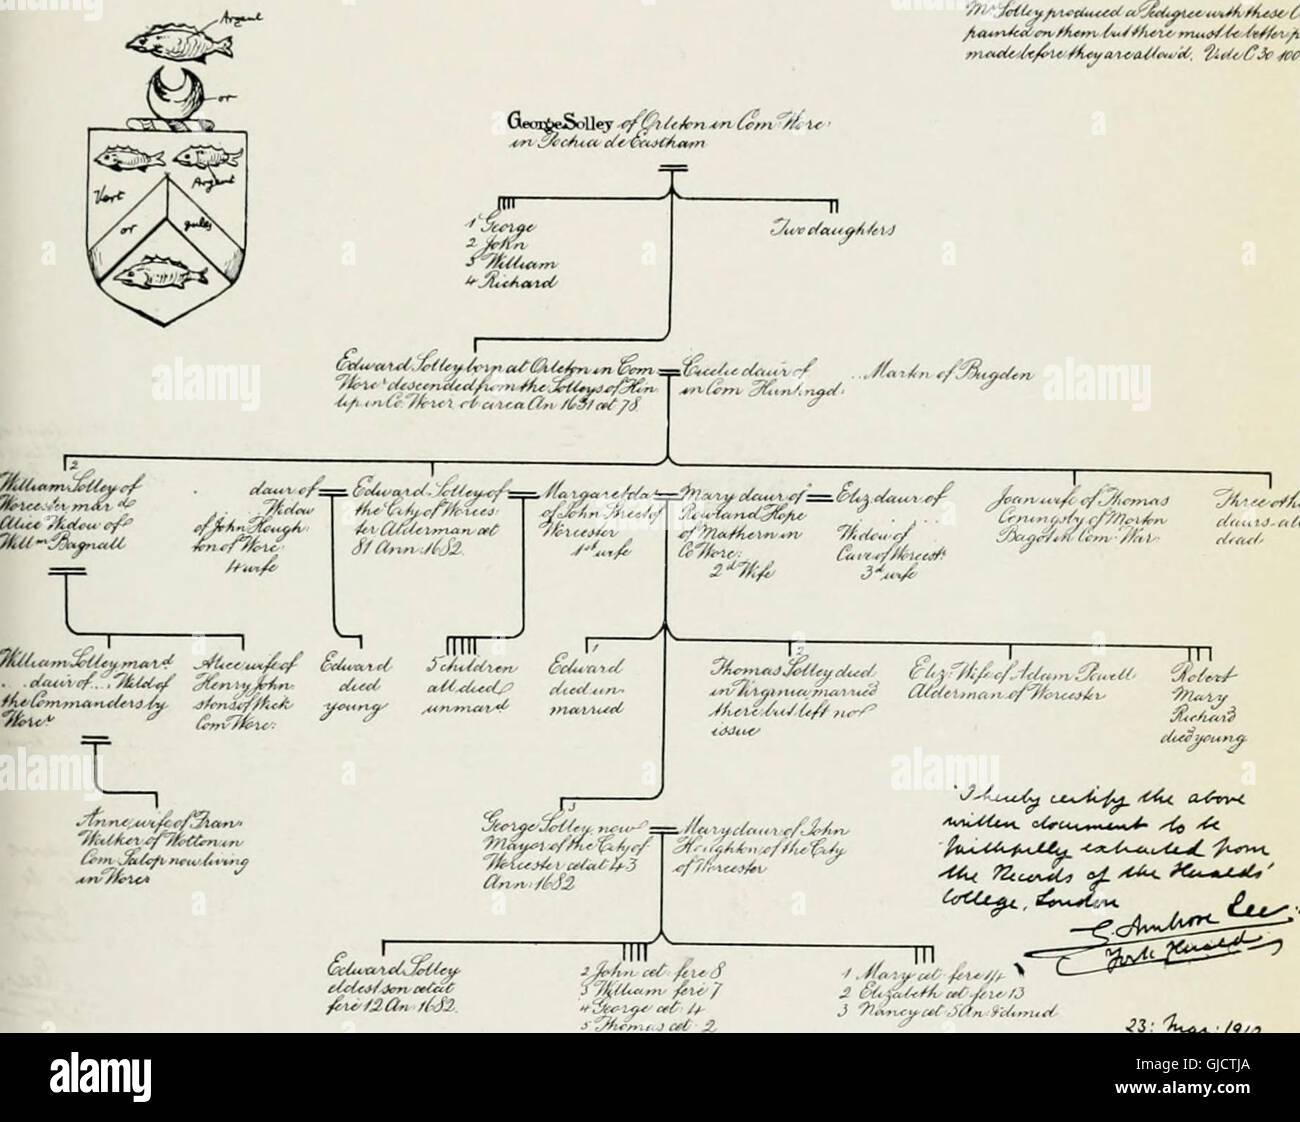 Argent
or
Argent
Vert
or
gules
Mr Solley produced a Pedigree with these
painted on them but there must be better
made before they are allow'd. Vide C 30 100
George Solley of Orleton in Com Worc
in Pochia de Eastham
1 George
2 John
3 William
4 Richard
Two daughters
Edward Solley born at Orleton in Com
Worc descended from the Solleys of Hin
lip in Co. Worcr ob circa An 1631 æt 78
Cicelie daur of
in Com Huntingd:
.. Martin of Bugden
2
William Solley of
Worcester mar d
Alice Widow of
Willm Bagnall
daur of
Widow
of John Hough
ton of Worc:
4 wife
Edward Solley of
the City of Worces
ter Alderman æt
81 Ann: 1682.
Margaret da
of John Street of
Worcester
1st wife
Mary daur of
Rowland Hope
of Mathern in
Co Worc:
2d Wife
Eliz daur of
Widow of
Cave of Worcestr
3d wife
Joan wife of Thomas
Coningsby of Morton
Bagot in Com. War:
Three oth
daurs. all
dead
William Solley mard
. . daur of... Wild of
the Commanders by
Worcr
Alice wife of
Henry John
stons of Wick
Com Worc:
Edward
died
young
5 children
all died
unmard
1
Edward
died un
married
2
Thomas Solley died
in Virginia married
there but left no
issue
Eliz: Wife of Adam Powell
Alderman of Worcester
Robert
Mary
Richard
died young
Anne wife of Fran.
Walker of Wotton in
Com Salop now living
in Worcr
3
George Solley now
Mayor of the City of
Worcester ætat 43
Ann: 1682
Mary daur of John
Houghton of the City
of Worcester
Edward Solley
eldest son ætat
ferè 12 An: 1682.
2 John æt: ferè 8
3 William ferè 7
4 George æt: 4
5 Thomas æt: 2
1 Mary æt: ferè 14
2 Elizabeth æt ferè 13
3 Nancy æt 5 An: & dimid
I hereby certify the above
written document to be
faithfully extracted from
the Records of the Heralds'
College, London
G. Ambrose Lee
York Herald
23: Mar: 191
alamy
a
alamy
Image ID: GJCTJA
www.alamy.com